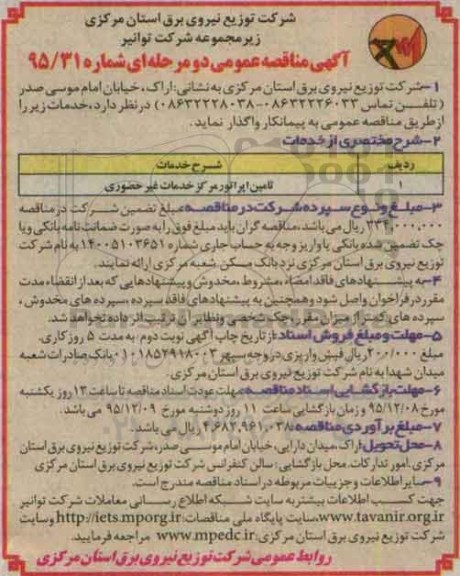 شرکت توزیع نیروی برق استان مرکزی
زیرمجموعه شرکت توانیر
آگهی مناقصه عمومی دو مرحله ای شماره ۹۵/۳۱
۱-شرکت توزیع نیروی برق استان مرکزی به نشانی: اراک، خیابان امام موسی صدر
( تلفن تماس ۰۸۶۳۲۲۲۶۰۳۳-۰۸۶۳۲۲۲۸۰۳۸) در نظر دارد، خدمات زیر را
از طریق مناقصه عمومی به پیمانکار واگذار نماید.
۲-شرح مختصری از خدمات
ردیف شرح خدمات
۱ تامین اپراتور مرکز خدمات غیر حضوری
۳-مبلغ و نوع سپرده شرکت در مناقصه: مبلغ تضمین شرکت در مناقصه
۳۳۴,۰۰۰,۰۰۰ ریال می باشد، مناقصه گران باید مبلغ فوق را به صورت ضمانت نامه بانکی و یا
چک تضمین شده بانکی یا واریز وجه به حساب جاری شماره ۱۴۰۰۵۱۰۳۶۵۱ به نام شرکت
توزیع نیروی برق استان مرکزی نزد بانک مسکن شعبه مرکزی ارائه نمایند.
۴-به پیشنهادهای فاقد امضاء، مشروط، مخدوش و پیشنهادهایی که بعد از انقضاء مدت
مقرر در فراخوان واصل شود و همچنین به پیشنهادهای فاقد سپرده، سپرده های مخدوش،
سپرده های کمتر از میزان مقرر، چک شخصی و نظایر آن ترتیب اثر داده نخواهد شد.
۵-مهلت و مبلغ فروش اسناد: از تاریخ چاپ آگهی نوبت دوم به مدت ۵ روز کاری.
مبلغ ۲۰۰/۰۰۰ ریال فیش واریزی در وجه سپهر ۰۱۰۱۸۵۲۹۱۸۰۰۳ بانک صادرات شعبه
میدان شهدا به نام شرکت توزیع نیروی برق استان مرکزی.
۶-مهلت بازگشایی اسناد مناقصه: مهلت عودت اسناد مناقصه تا ساعت ۱۳ روز یکشنبه
مورخ ۹۵/۱۲/۰۸ و زمان بازگشایی ساعت ۱۱ روز دوشنبه مورخ ۹۵/۱۲/۰۹ می باشد.
۷-مبلغ برآوردی مناقصه: ۴,۶۸۲,۹۶۱,۰۳۸ ریال می باشد.
۸-محل تحویل: اراک، میدان دارایی، خیابان امام موسی صدر، شرکت توزیع نیروی برق استان
مرکزی، امور تدارکات. محل بازگشایی: سالن کنفرانس شرکت توزیع نیروی برق استان مرکزی
۹-سایر اطلاعات و جزییات مربوطه در اسناد مناقصه مندرج است.
جهت کسب اطلاعات بیشتر به سایت شبکه اطلاع رسانی معاملات شرکت توانیر
www.tavanir.org.ir، سایت پایگاه ملی مناقصات: http://iets.mporg.ir و سایت
شرکت توزیع نیروی برق استان مرکزی: www.mpedc.ir مراجعه فرمایید.
روابط عمومی شرکت توزیع نیروی برق استان مرکزی